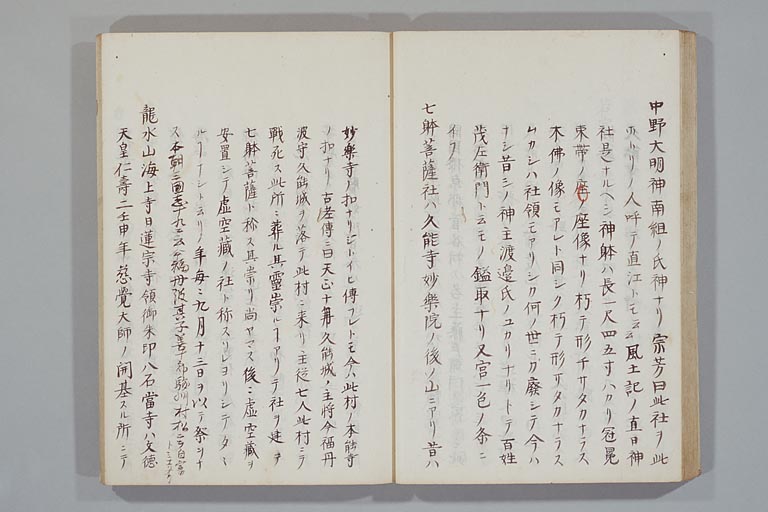 中野大明神南組ノ氏神ナリ宗芳曰此社ヲ此
ホトリノ人呼テ直江トモ云風土記ノ直日神
社是ナルヘシ神躰ハ長一尺四五寸ハカリ冠冕
束帯ノ座像ナリ朽テ形チサタカナラス
本佛ノ像モアレト同シク朽テ形サタカナラス
ムカシハ社領モアリシク何ノ世ニカ廢シテ今ハ
ナシ昔シノ神主渡邉氏ノユカリナリトテ百姓
茂左衛門ト云モノ鑑取ナリ又宮一色ノ条ニ
七躰菩薩社ハ久能寺妙樂院ノ後ノ山ニアリ昔ハ
妙樂寺ノ扣ナリシトイヒ傳フレトモ今ハ此村ノ本能寺
ノ扣ナリ古老傳ニ曰天正十年久能城ノ主将今福丹
波守久能城ヲ落テ此村ニ来リ主従七人此村ニテ
戦死ス此所ニ葬ル其靈崇ルアリテ社ヲ建テ
七躰菩薩ト称ス其崇リ尚ヤマス後ニ虚空藏ヲ
安置シテ虚空藏ノ社ト称スソレヨリシテタヽ
ルナシト云リ年毎ニ九月十三日ヲ以テ祭リナ
ス本朝三國志十九ニ云今福丹波其子善十郎駿州村松ニテ自害
トミエタリ
龍水山海上寺日蓮宗寺領御朱印八石當寺ハ文徳
天皇仁壽二壬申年慈覺大師ノ開基スル所ニテ